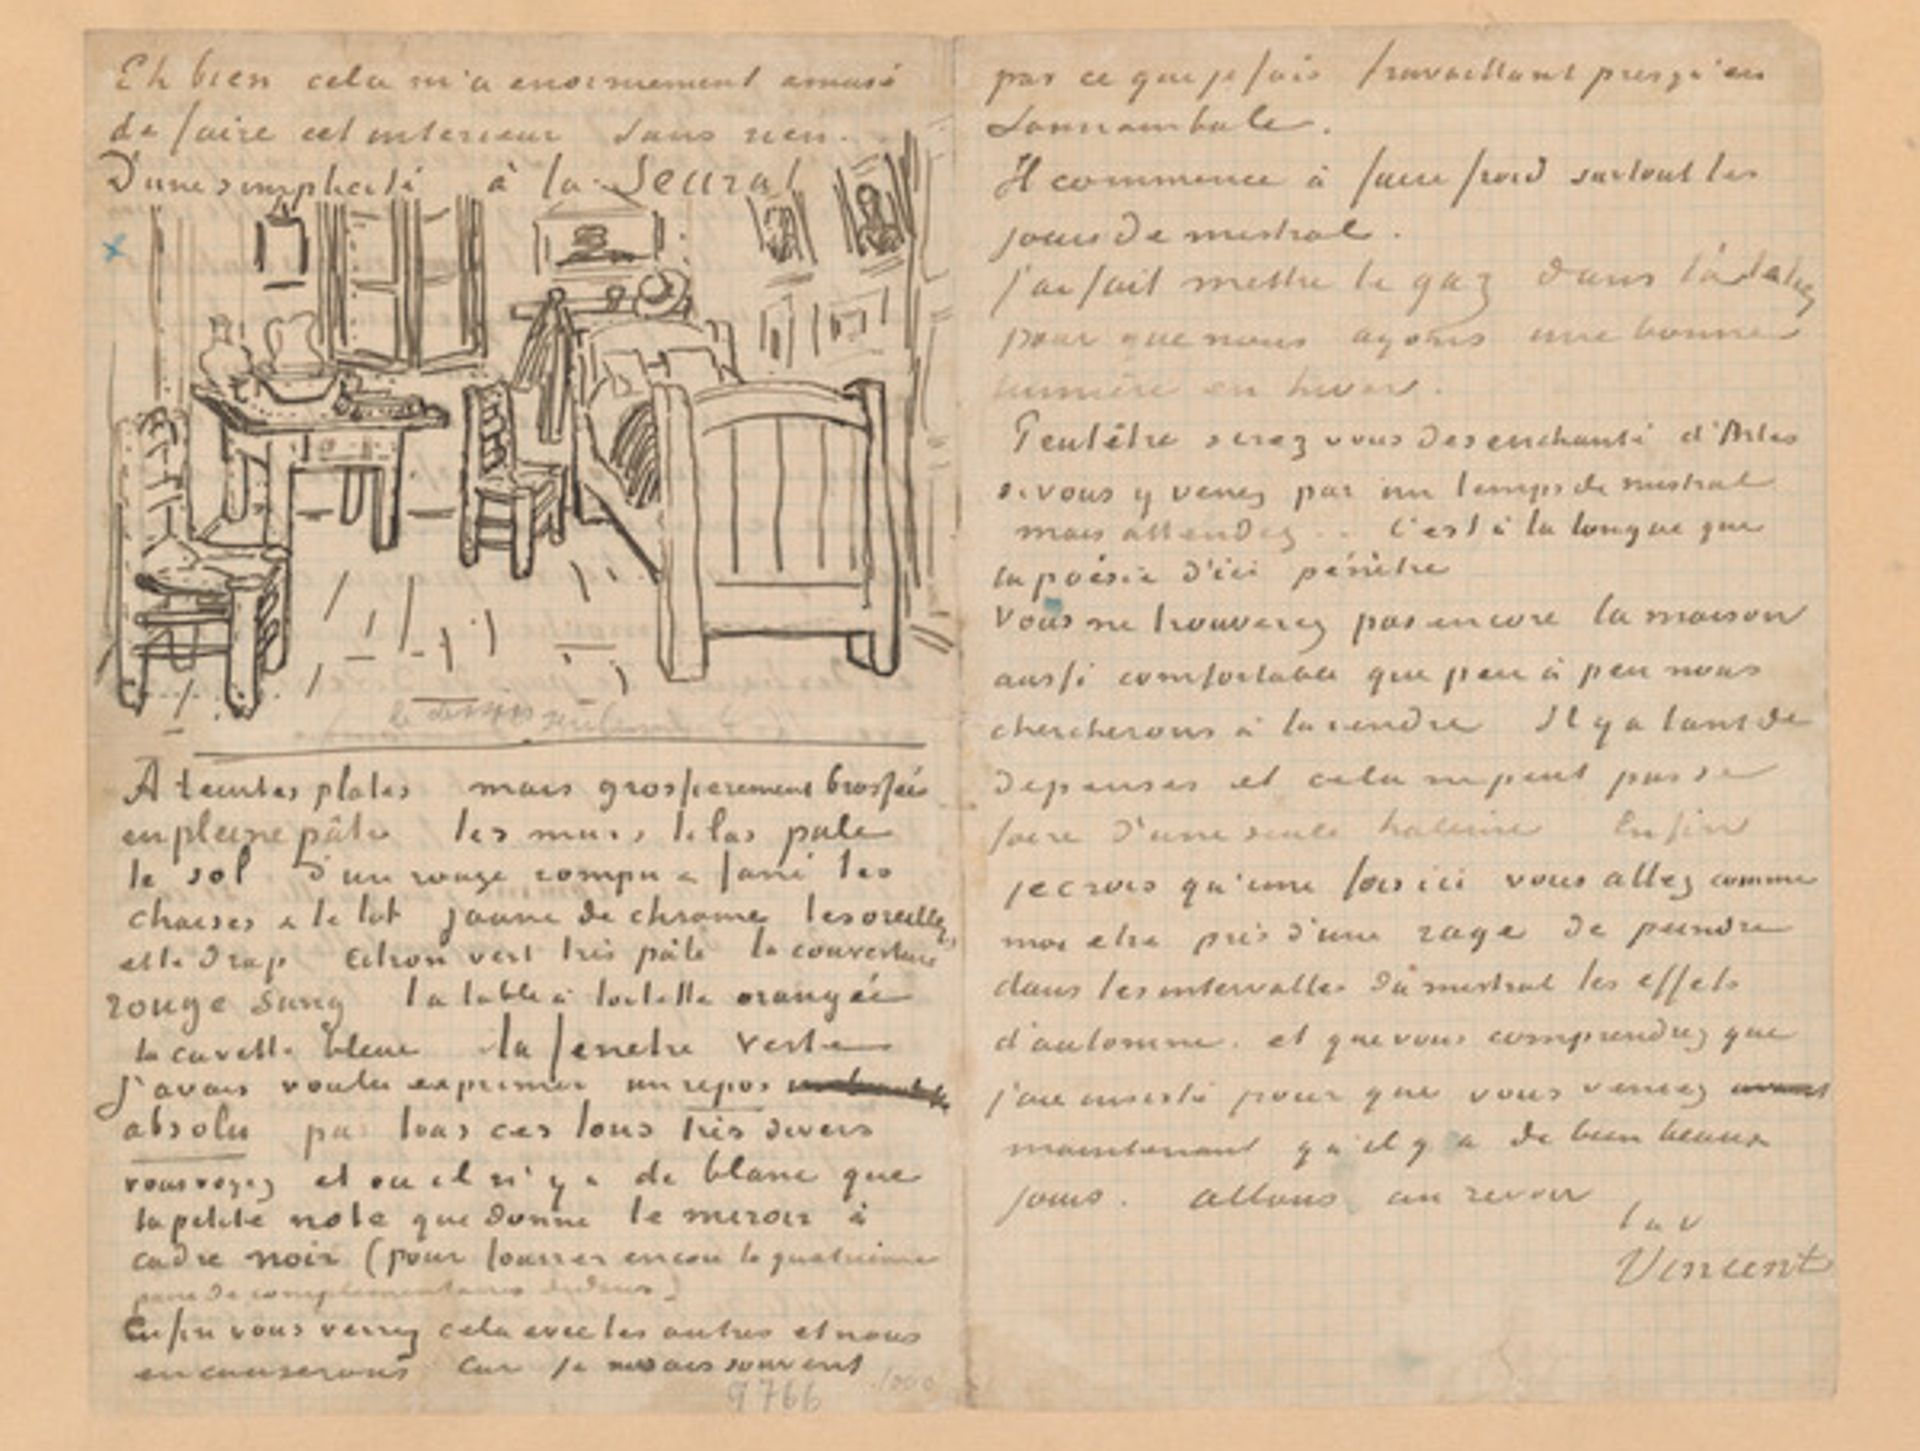 Eh bien cela m'a enormement amusé
de faire cet interieur sans rien.
D'une simplicité à la Seurat
le dessin seulement
A teintes plates mais grossierement brossées
en pleine pâte les murs lilas pale
le sol d'un rouge rompu & fané les
chaises & le lit jaune de chrome les oreillers
et le drap citron vert très pâle la couverture
rouge sang la table à toilette orangée
la cuvette bleue la fenetre verte
j'avais voulu exprimer un repos
absolu par tous ces tons très divers
vous voyez et ou il n'y a de blanc que
la petite note que donne le miroir à
cadre noir (pour fourrer encore la quatrieme
paire de complementaires dedans)
Enfin vous verrez cela avec les autres et nous
en causerons car je ne sais souvent
9766
1000
par ce que je fais travaillant presqu'en
somnambule.
Il commence à faire froid surtout les
jours de mistral.
j'ai fait mettre le gaz dans l'atelier
pour que nous ayons une bonne
lumière en hiver.
Peutêtre serez vous desenchanté d'Arles
si vous y venez par un temps de mistral
mais attendez .. C'est à la longue que
la poésie d'ici pénètre
Vous ne trouverez pas encore la maison
aussi comfortable que peu à peu nous
chercherons à la rendre Il y a tant de
depenses et cela ne peut pas se
faire d'une seule haleine Enfin
je crois qu'une fois ici vous allez comme
moi etre pris d'une rage de peindre
dans les intervalles du mistral les effets
d'automne. et que vous comprendrez que
j'aie insisté pour que vous veniez
maintenant qu'il y a de bien beaux
jours. allons au revoir
t. à v
Vincent